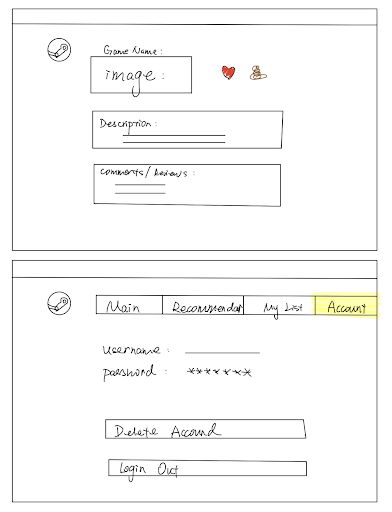 Game Name:
image:
Description:
comments/Reviews:
Main Recommendat My List Account
username:
password: *******
Delete Accound
Login Out